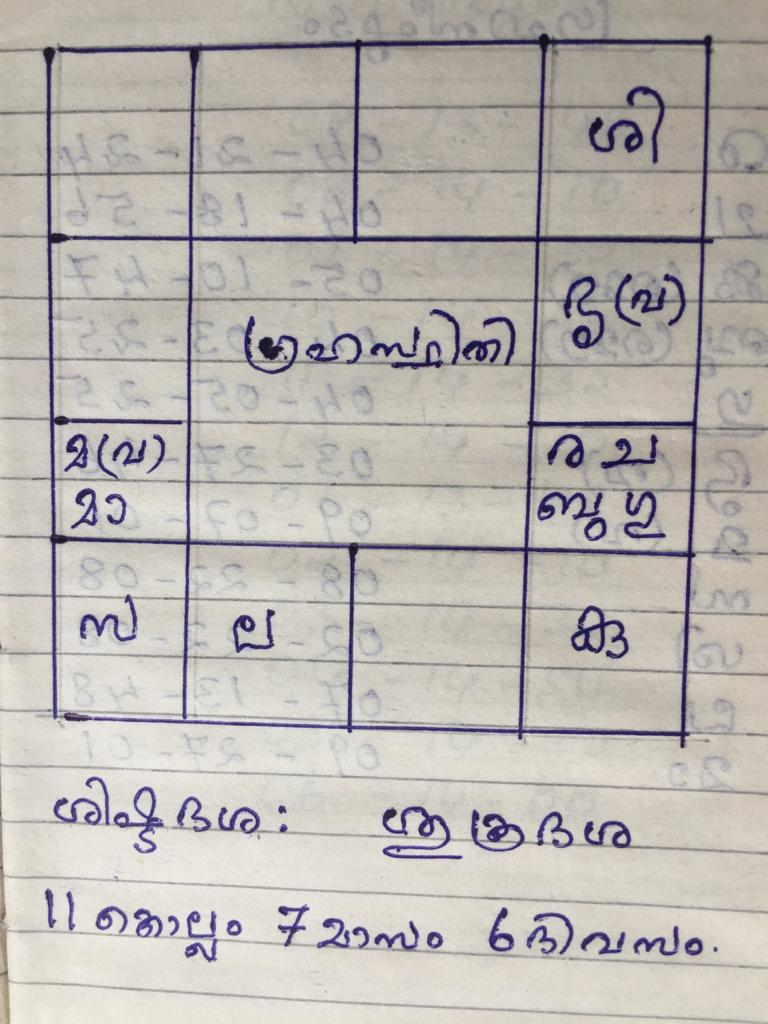 ശി
ഗ്രഹസ്ഥിതി
മ(വ)
മാ
ര ച
ബു ഗു
സ
ല
കു
ശിഷ്ട ദശ: ശുക്രദശ
11 കൊല്ലം 7 മാസം 6 ദിവസം.